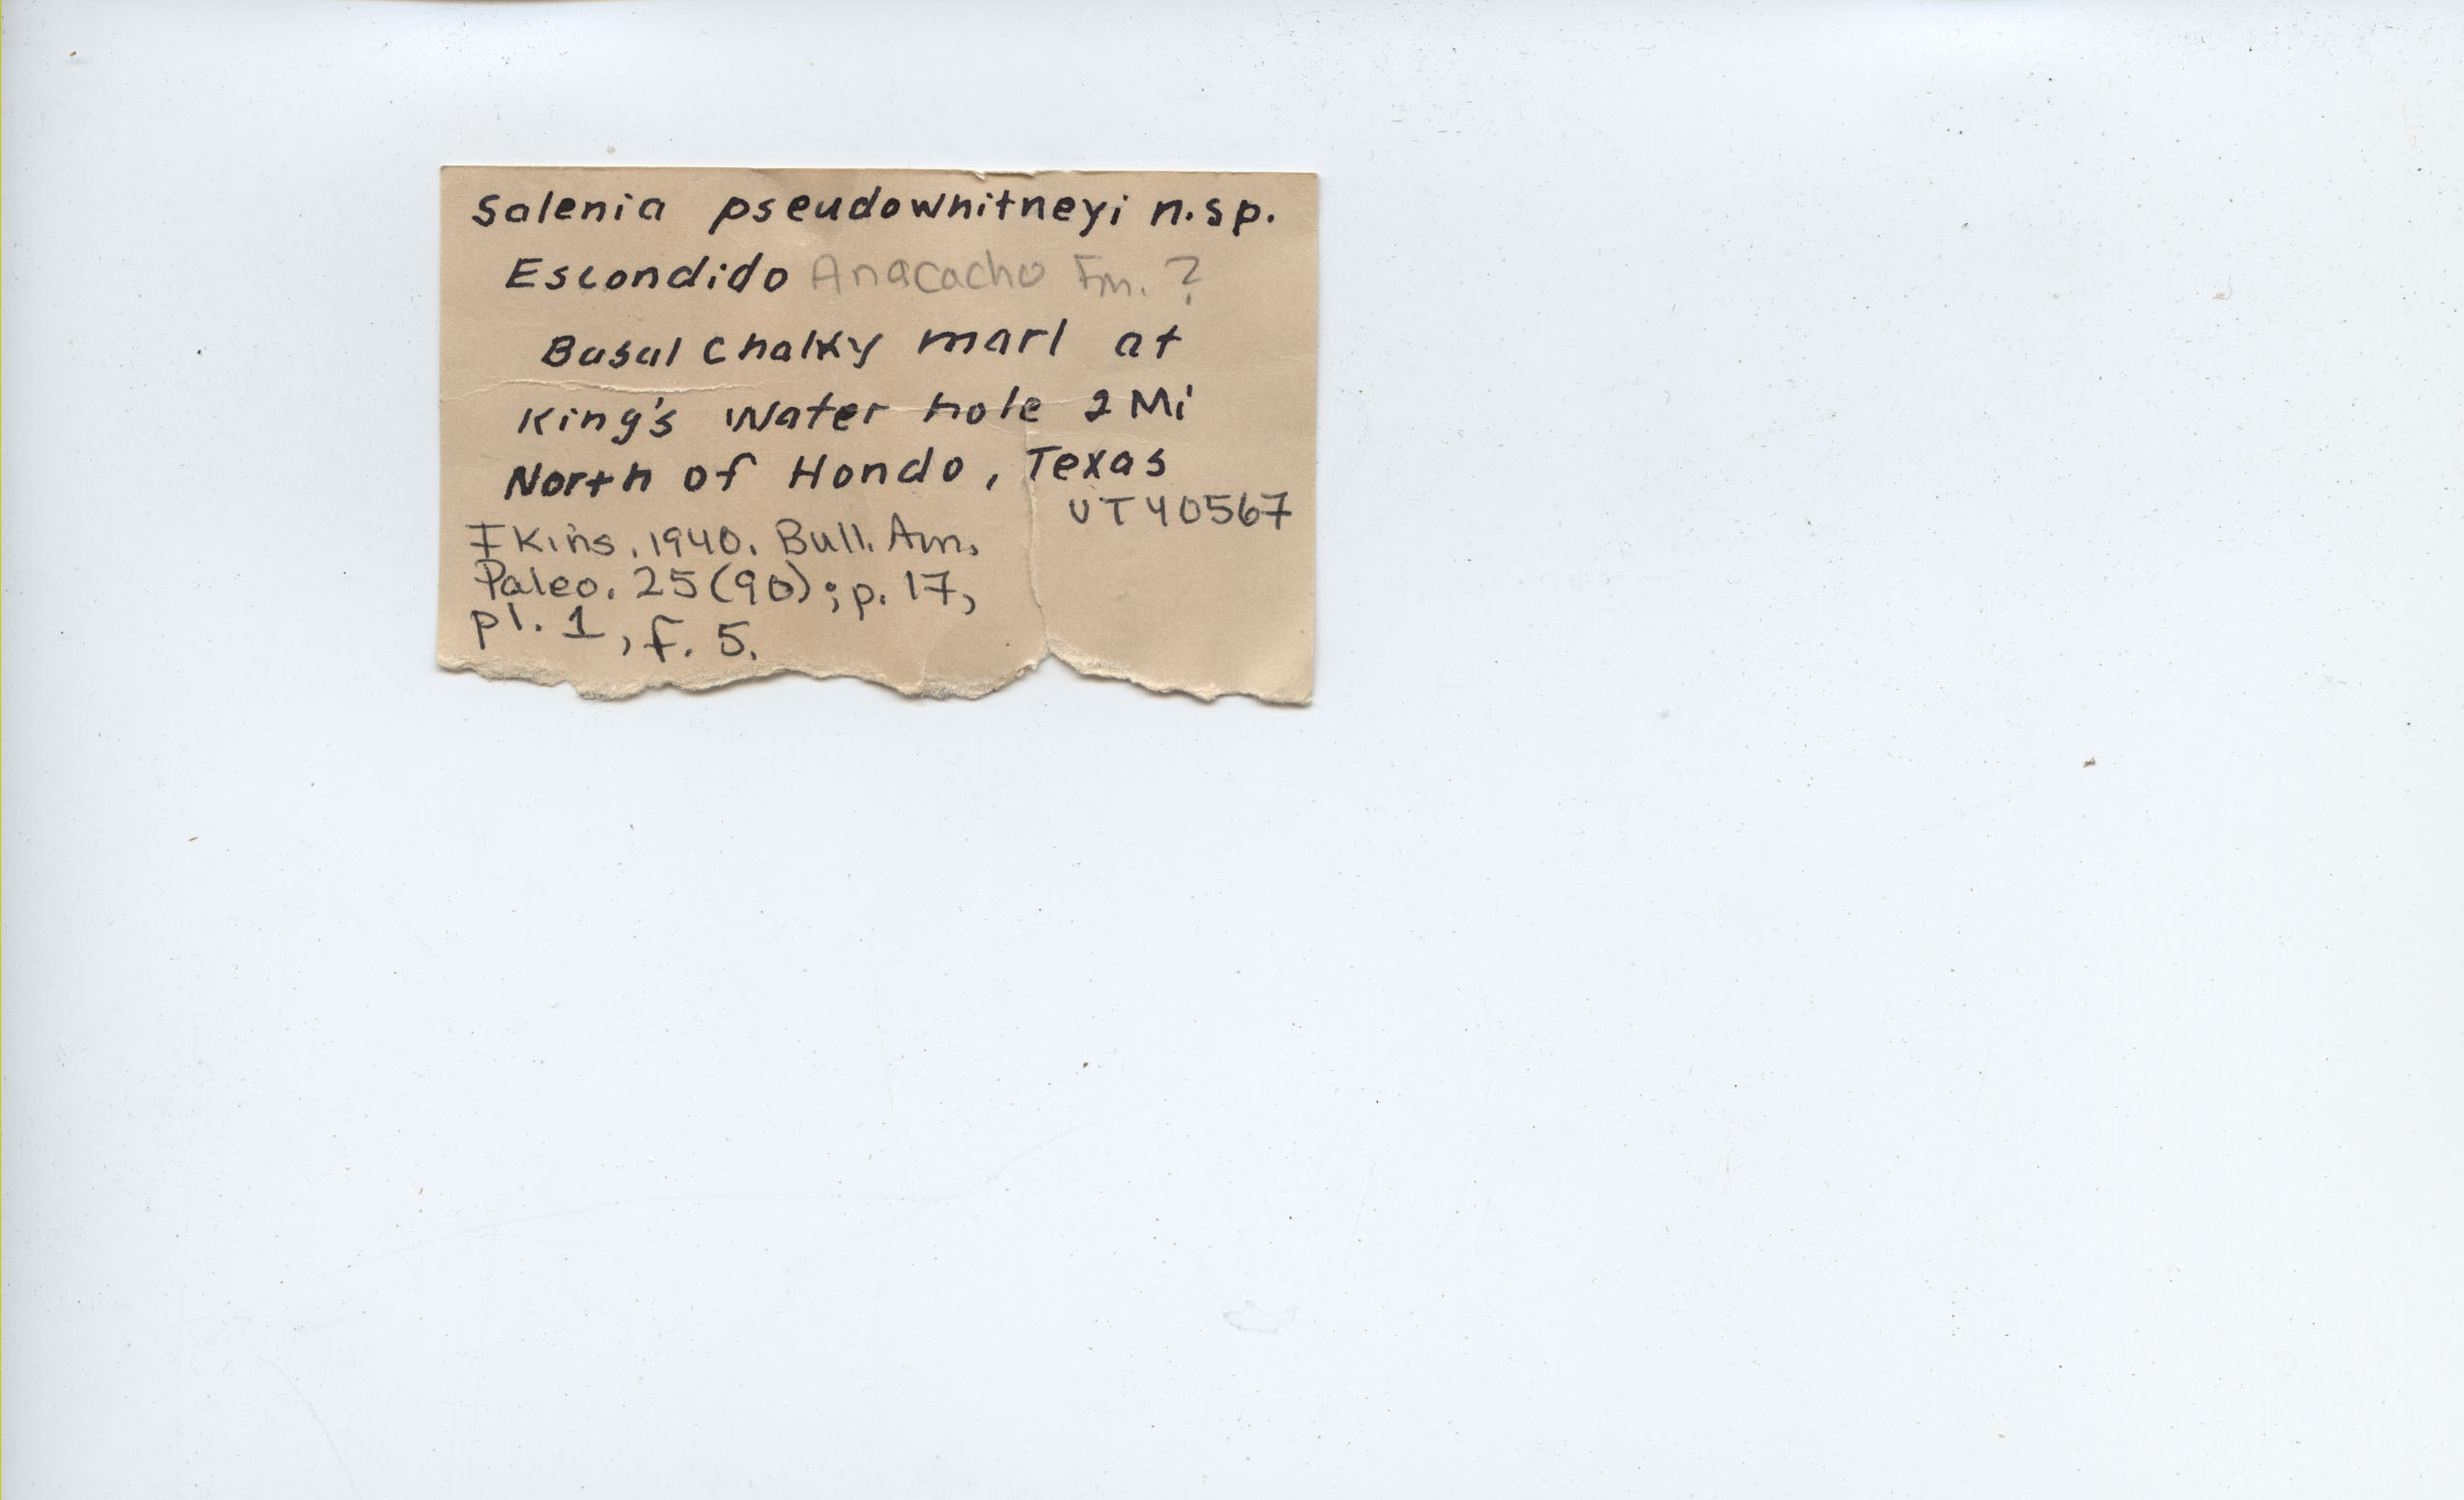 Salenia pseudowhitneyi n.sp.
Escondido Anacacho Fm. ?
Basal Chalky marl at
King's Water hole 2 Mi
North of Hondo, Texas
UT40567
Ikins. 1940. Bull. Am.
Paleo. 25(90); p. 17,
pl. 1, f. 5.